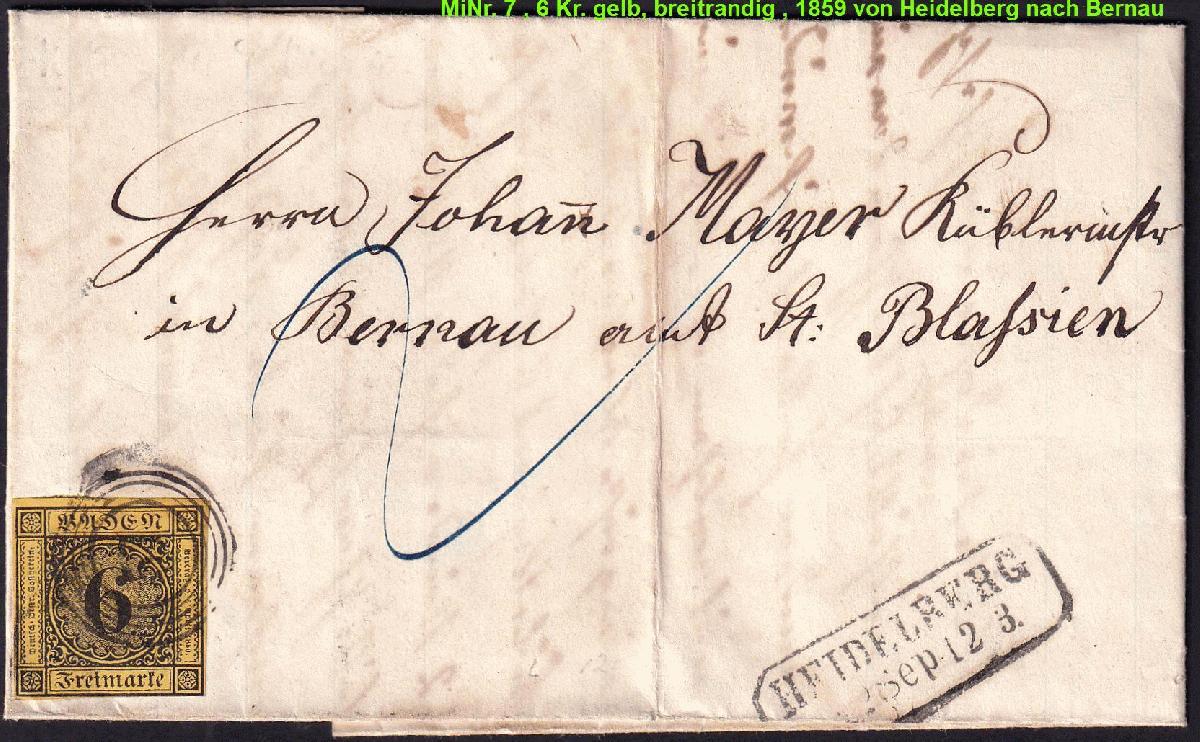 MiNr. 7 , 6 Kr. gelb, breitrandig , 1859 von Heidelberg nach Bernau
Herrn Johan̅n Mayer Küblermstr
in Bernau amt St: Blaſsien
2
BADEN
6
Freimarke
HEIDELBERG
Sep. 12 3.